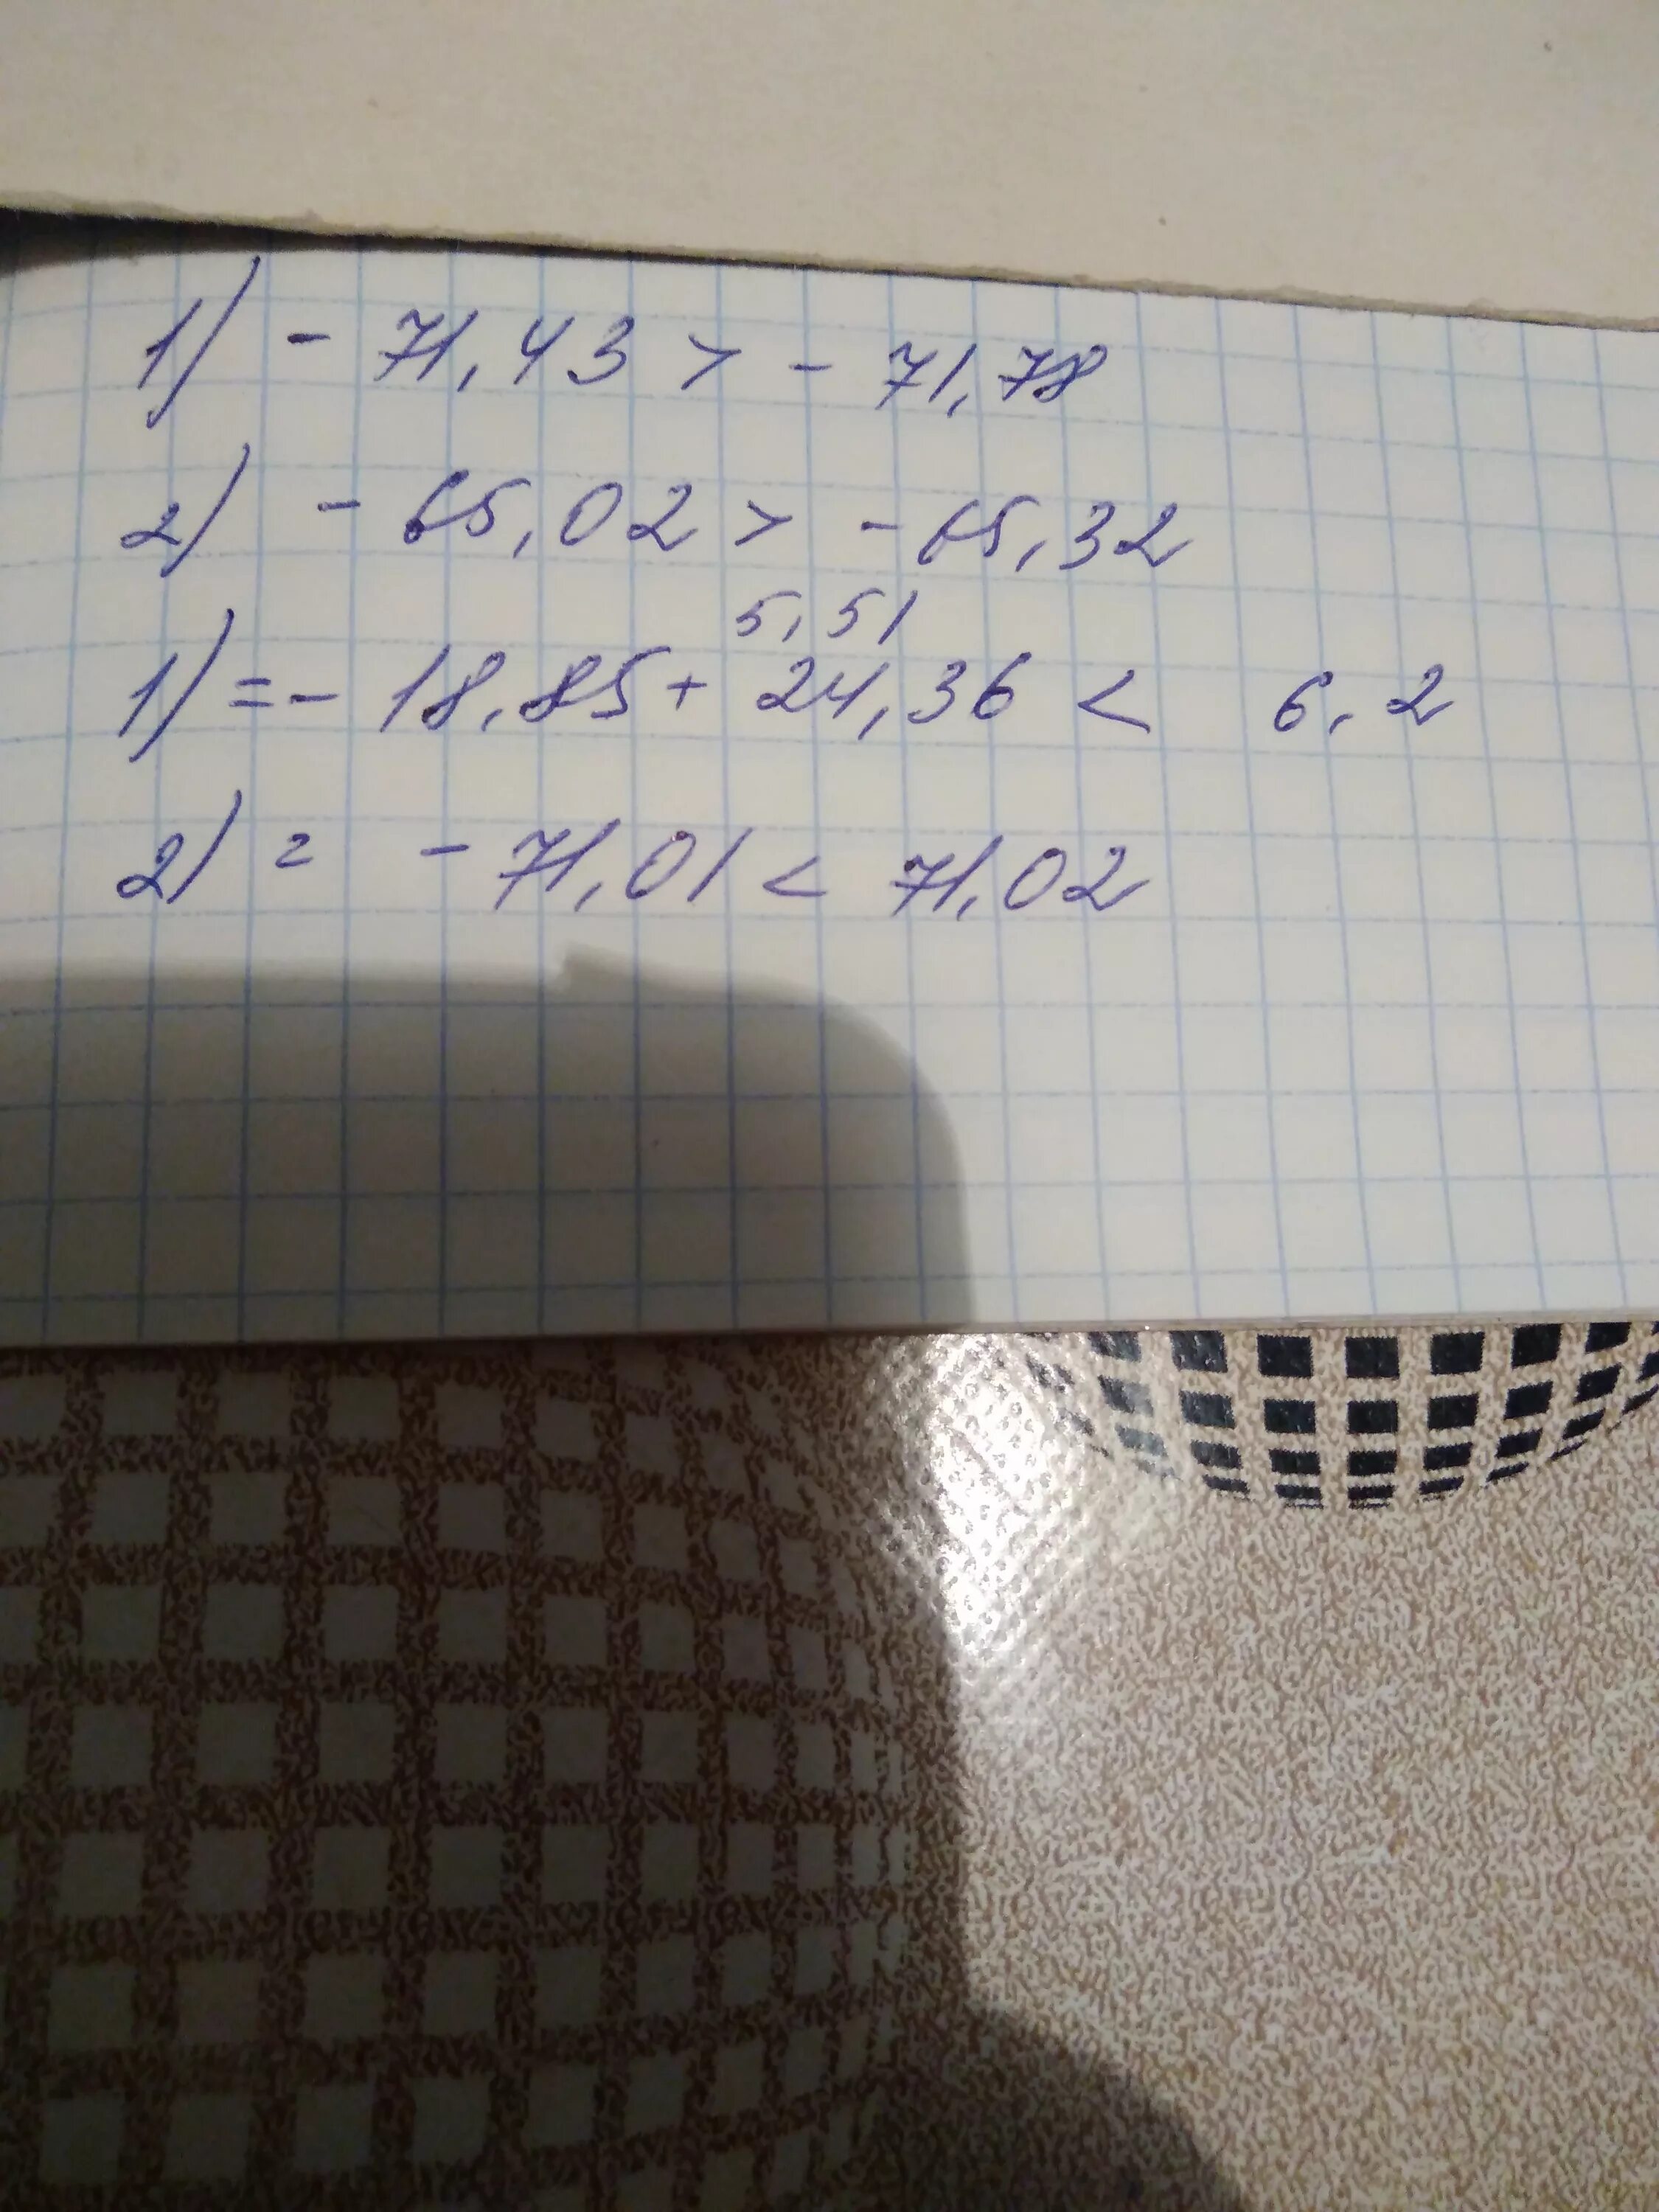 1) - 71,43 > - 71,78
2) - 65,02 > - 65,32
5,51
1) = - 18,85 + 24,36 < 6,2
2) = - 71,01 < 71,02